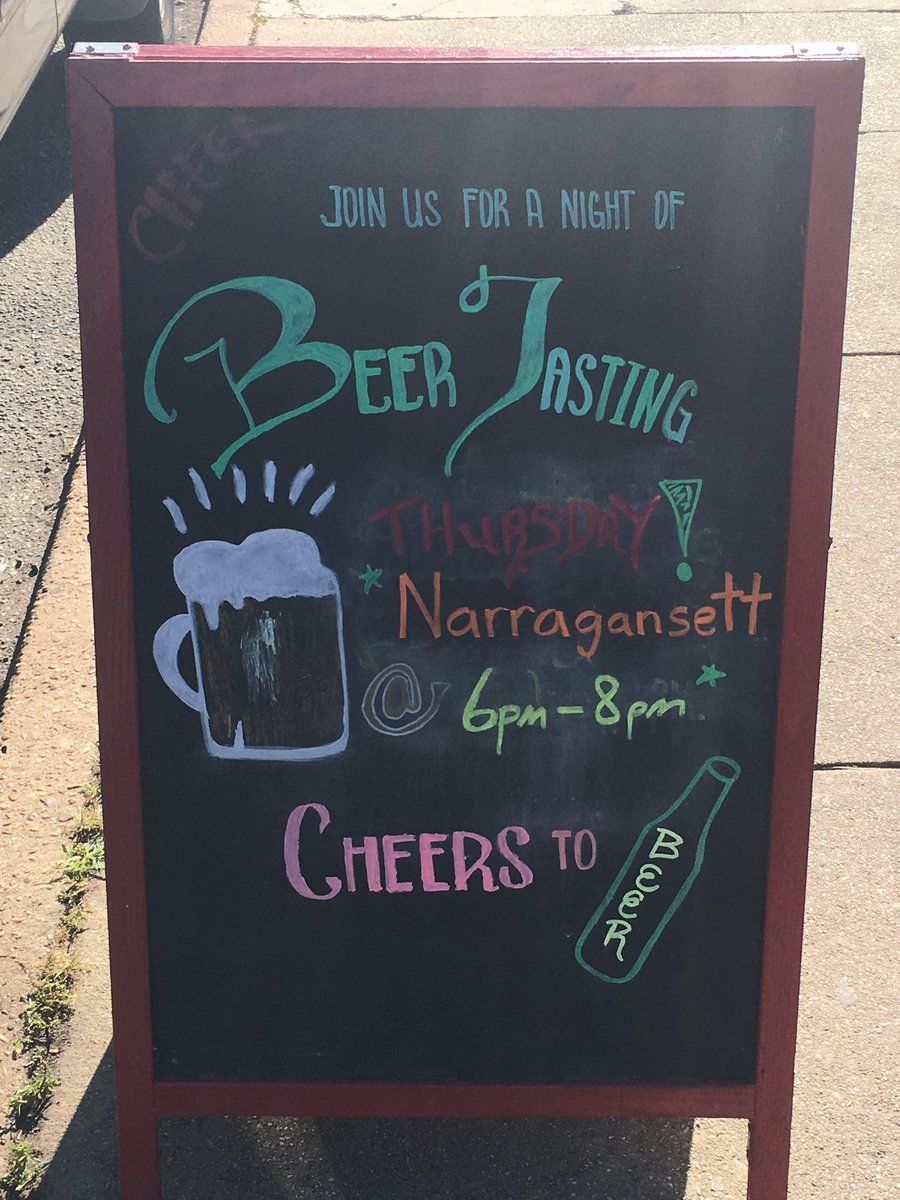 CHEER
JOIN US FOR A NIGHT OF
BEER TASTING
THURSDAY!
*Narragansett
@ 6pm-8pm*
CHEERS TO
BEER